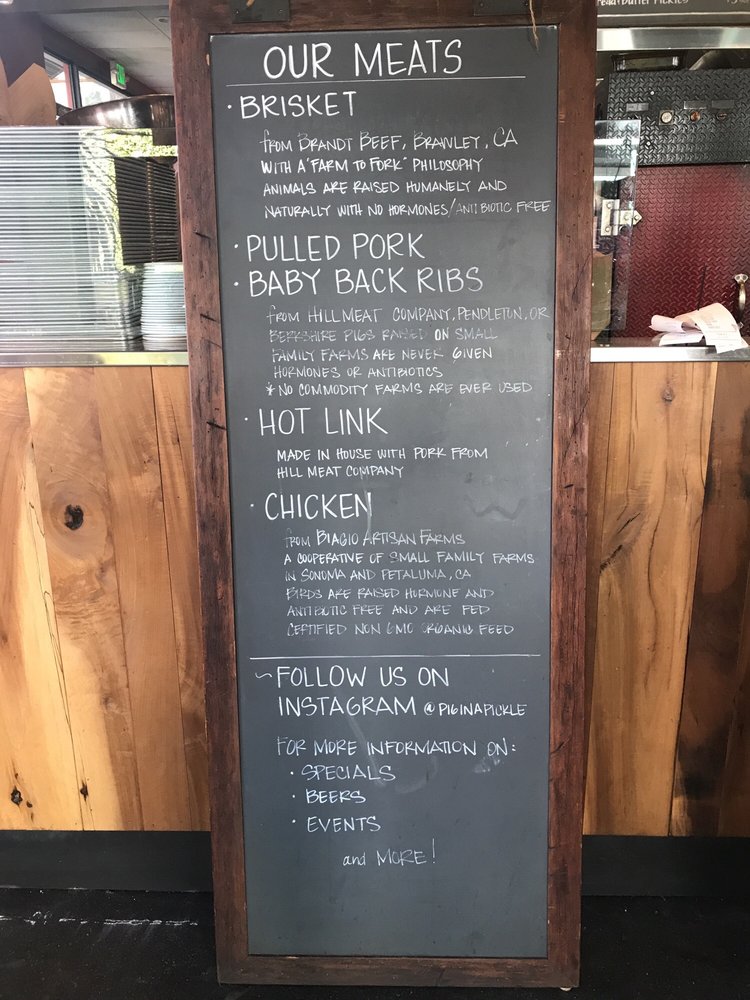 OUR MEATS
· BRISKET
from BRANDT BEEF, BRAWLEY, CA
WITH A "FARM TO FORK" PHILOSOPHY
ANIMALS ARE RAISED HUMANELY AND
NATURALLY WITH NO HORMONES/ANTIBIOTIC FREE
· PULLED PORK
· BABY BACK RIBS
from HILL MEAT COMPANY, PENDLETON, OR
BERKSHIRE PIGS RAISED ON SMALL
FAMILY FARMS ARE NEVER GIVEN
HORMONES OR ANTIBIOTICS
* NO COMMODITY FARMS ARE EVER USED
· HOT LINK
MADE IN HOUSE WITH PORK FROM
HILL MEAT COMPANY
· CHICKEN
from BIAGIO ARTISAN FARMS
A COOPERATIVE OF SMALL FAMILY FARMS
IN SONOMA AND PETALUMA, CA
BIRDS ARE RAISED HORMONE AND
ANTIBIOTIC FREE AND ARE FED
CERTIFIED NON GMO ORGANIC FEED
~ FOLLOW US ON
INSTAGRAM @PIGINAPICKLE
FOR MORE INFORMATION ON:
· SPECIALS
· BEERS
· EVENTS
and MORE!